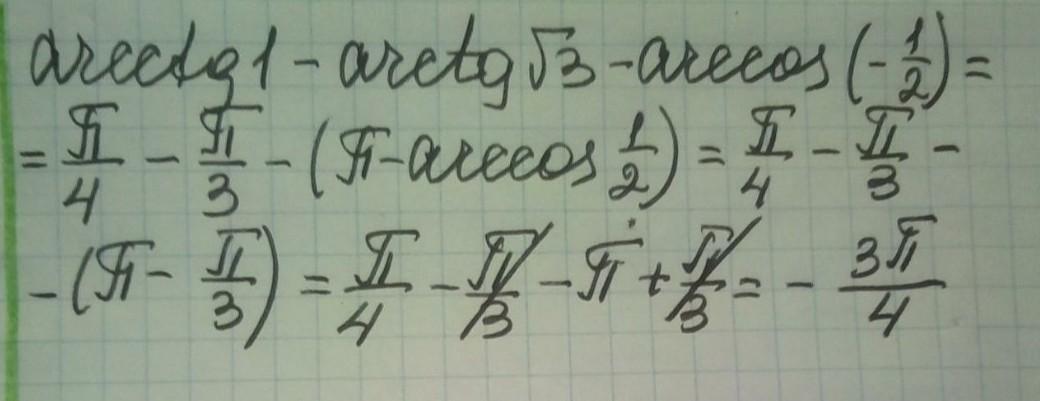 arcctg1 - arctg√3 - arccos(-1/2) =
= π/4 - π/3 - (π - arccos 1/2) = π/4 - π/3 -
- (π - π/3) = π/4 - π/3 - π + π/3 = - 3π/4